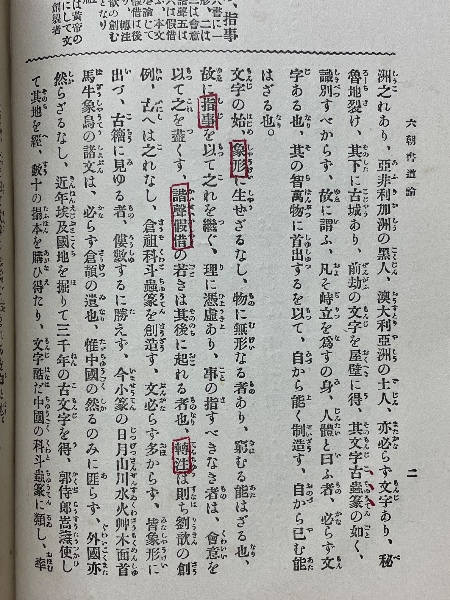 六朝書道論
二
洲之れあり、亞非利加洲の黑人、澳大利亞洲の土人、亦必らず文字あり、秘
魯地裂け、其下に古城あり、前劫の文字を屋壁に得、其文字古蟲篆の如く、
識別すべからず、故に謂ふ、凡そ峙立を爲すの身、人體と曰ふ者、必らず文
字ある也、其の智萬物に首出するを以て、自から能く制造す、自から已む能
はざる也。
文字の始、象形に生せざるなし、物に無形なる者あり、窮むる能はざる也、
故に指事を以て之れを繼ぐ、理に憑虛あり、事の指すべきなき者は、會意を
以て之を盡くす、諧聲假借の若きは其後に起れる者也、轉注は則ち劉歆の創
例、古へは之れなし、倉祖科斗蟲篆を創造す、文必らず多からず、皆象形に
出づ、古籀に見ゆる者、僂數するに勝えず、今小篆の日月山川水火艸木面首
馬牛象鳥の諸文は、必らず倉頡の遺也、惟中國の然るのみに匪らず、外國亦
然らざるなし、近年埃及國地を掘りて三千年の古文字を得、郭侍郎嵩燾使し
て其地を經、數十の搨本を購ひ得たり、文字酷だ中國の科斗蟲篆に類し、率